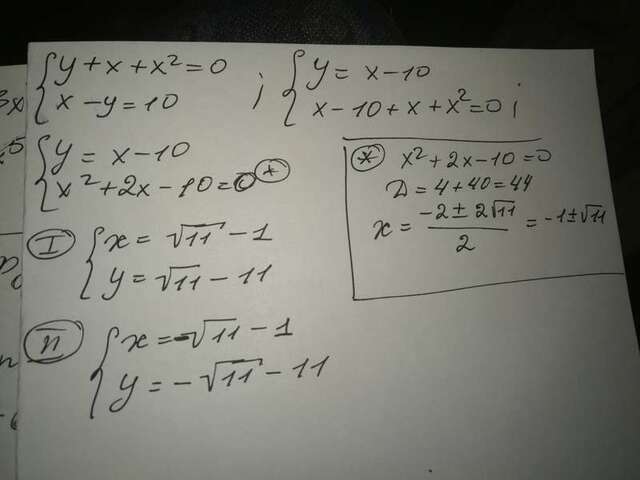 { y + x + x² = 0 ; { y = x - 10
{ x - y = 10 { x - 10 + x + x² = 0 ;
{ y = x - 10
{ x² + 2x - 10 = 0 (*)
(*) x² + 2x - 10 = 0
D = 4 + 40 = 44
x = (-2 ± 2√11) / 2 = -1 ± √11
I { x = √11 - 1
{ y = √11 - 11
II { x = -√11 - 1
{ y = -√11 - 11